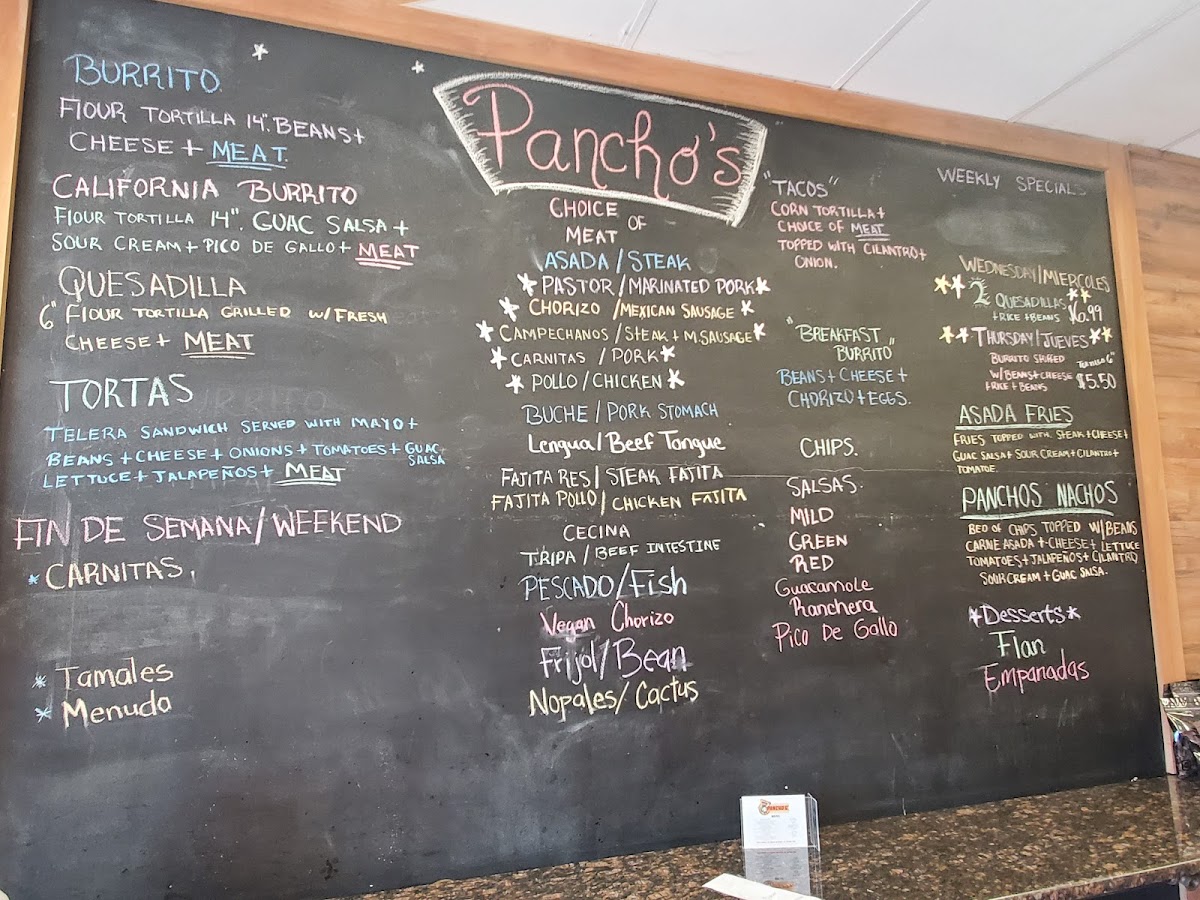 BURRITO
FLOUR TORTILLA 14". BEANS+
CHEESE + MEAT.
CALIFORNIA BURRITO
FLOUR TORTILLA 14". GUAC SALSA +
SOUR CREAM + PICO DE GALLO + MEAT
QUESADILLA
6" FLOUR TORTILLA GRILLED W/ FRESH
CHEESE + MEAT
TORTAS
TELERA SANDWICH SERVED WITH MAYO +
BEANS + CHEESE + ONIONS + TOMATOES + GUAC SALSA
LETTUCE + JALAPEÑOS + MEAT
FIN DE SEMANA/WEEKEND
* CARNITAS
* Tamales
* Menudo
Pancho's
CHOICE OF
MEAT
ASADA / STEAK
PASTOR / MARINATED PORK
CHORIZO / MEXICAN SAUSAGE
CAMPECHANOS / STEAK + M.SAUSAGE
CARNITAS / PORK
POLLO / CHICKEN
BUCHE / PORK STOMACH
Lengua / Beef Tongue
FAJITA RES / STEAK FAJITA
FAJITA POLLO / CHICKEN FAJITA
CECINA
TRIPA / BEEF INTESTINE
PESCADO / Fish
Vegan Chorizo
Frijol / Bean
Nopales / Cactus
"TACOS"
CORN TORTILLA +
CHOICE OF MEAT
TOPPED WITH CILANTRO +
ONION.
"BREAKFAST
BURRITO"
BEANS + CHEESE +
CHORIZO + EGGS.
CHIPS.
SALSAS.
MILD
GREEN
RED
Guacamole
Ranchera
Pico De Gallo
WEEKLY SPECIALS
WEDNESDAY/MIERCOLES
2 QUESADILLAS
+ RICE + BEANS $6.99
THURSDAY/JUEVES
BURRITO TORTILLA 6"
W/BEANS + CHEESE
+ RICE + BEANS $5.50
ASADA FRIES
FRIES TOPPED WITH STEAK + CHEESE +
GUAC SALSA + SOUR CREAM + CILANTRO +
TOMATOE.
PANCHOS NACHOS
BED OF CHIPS TOPPED W/BEANS
CARNE ASADA + CHEESE + LETTUCE
TOMATOES + JALAPEÑOS + CILANTRO
SOUR CREAM + GUAC SALSA.
*Desserts*
Flan
Empanadas